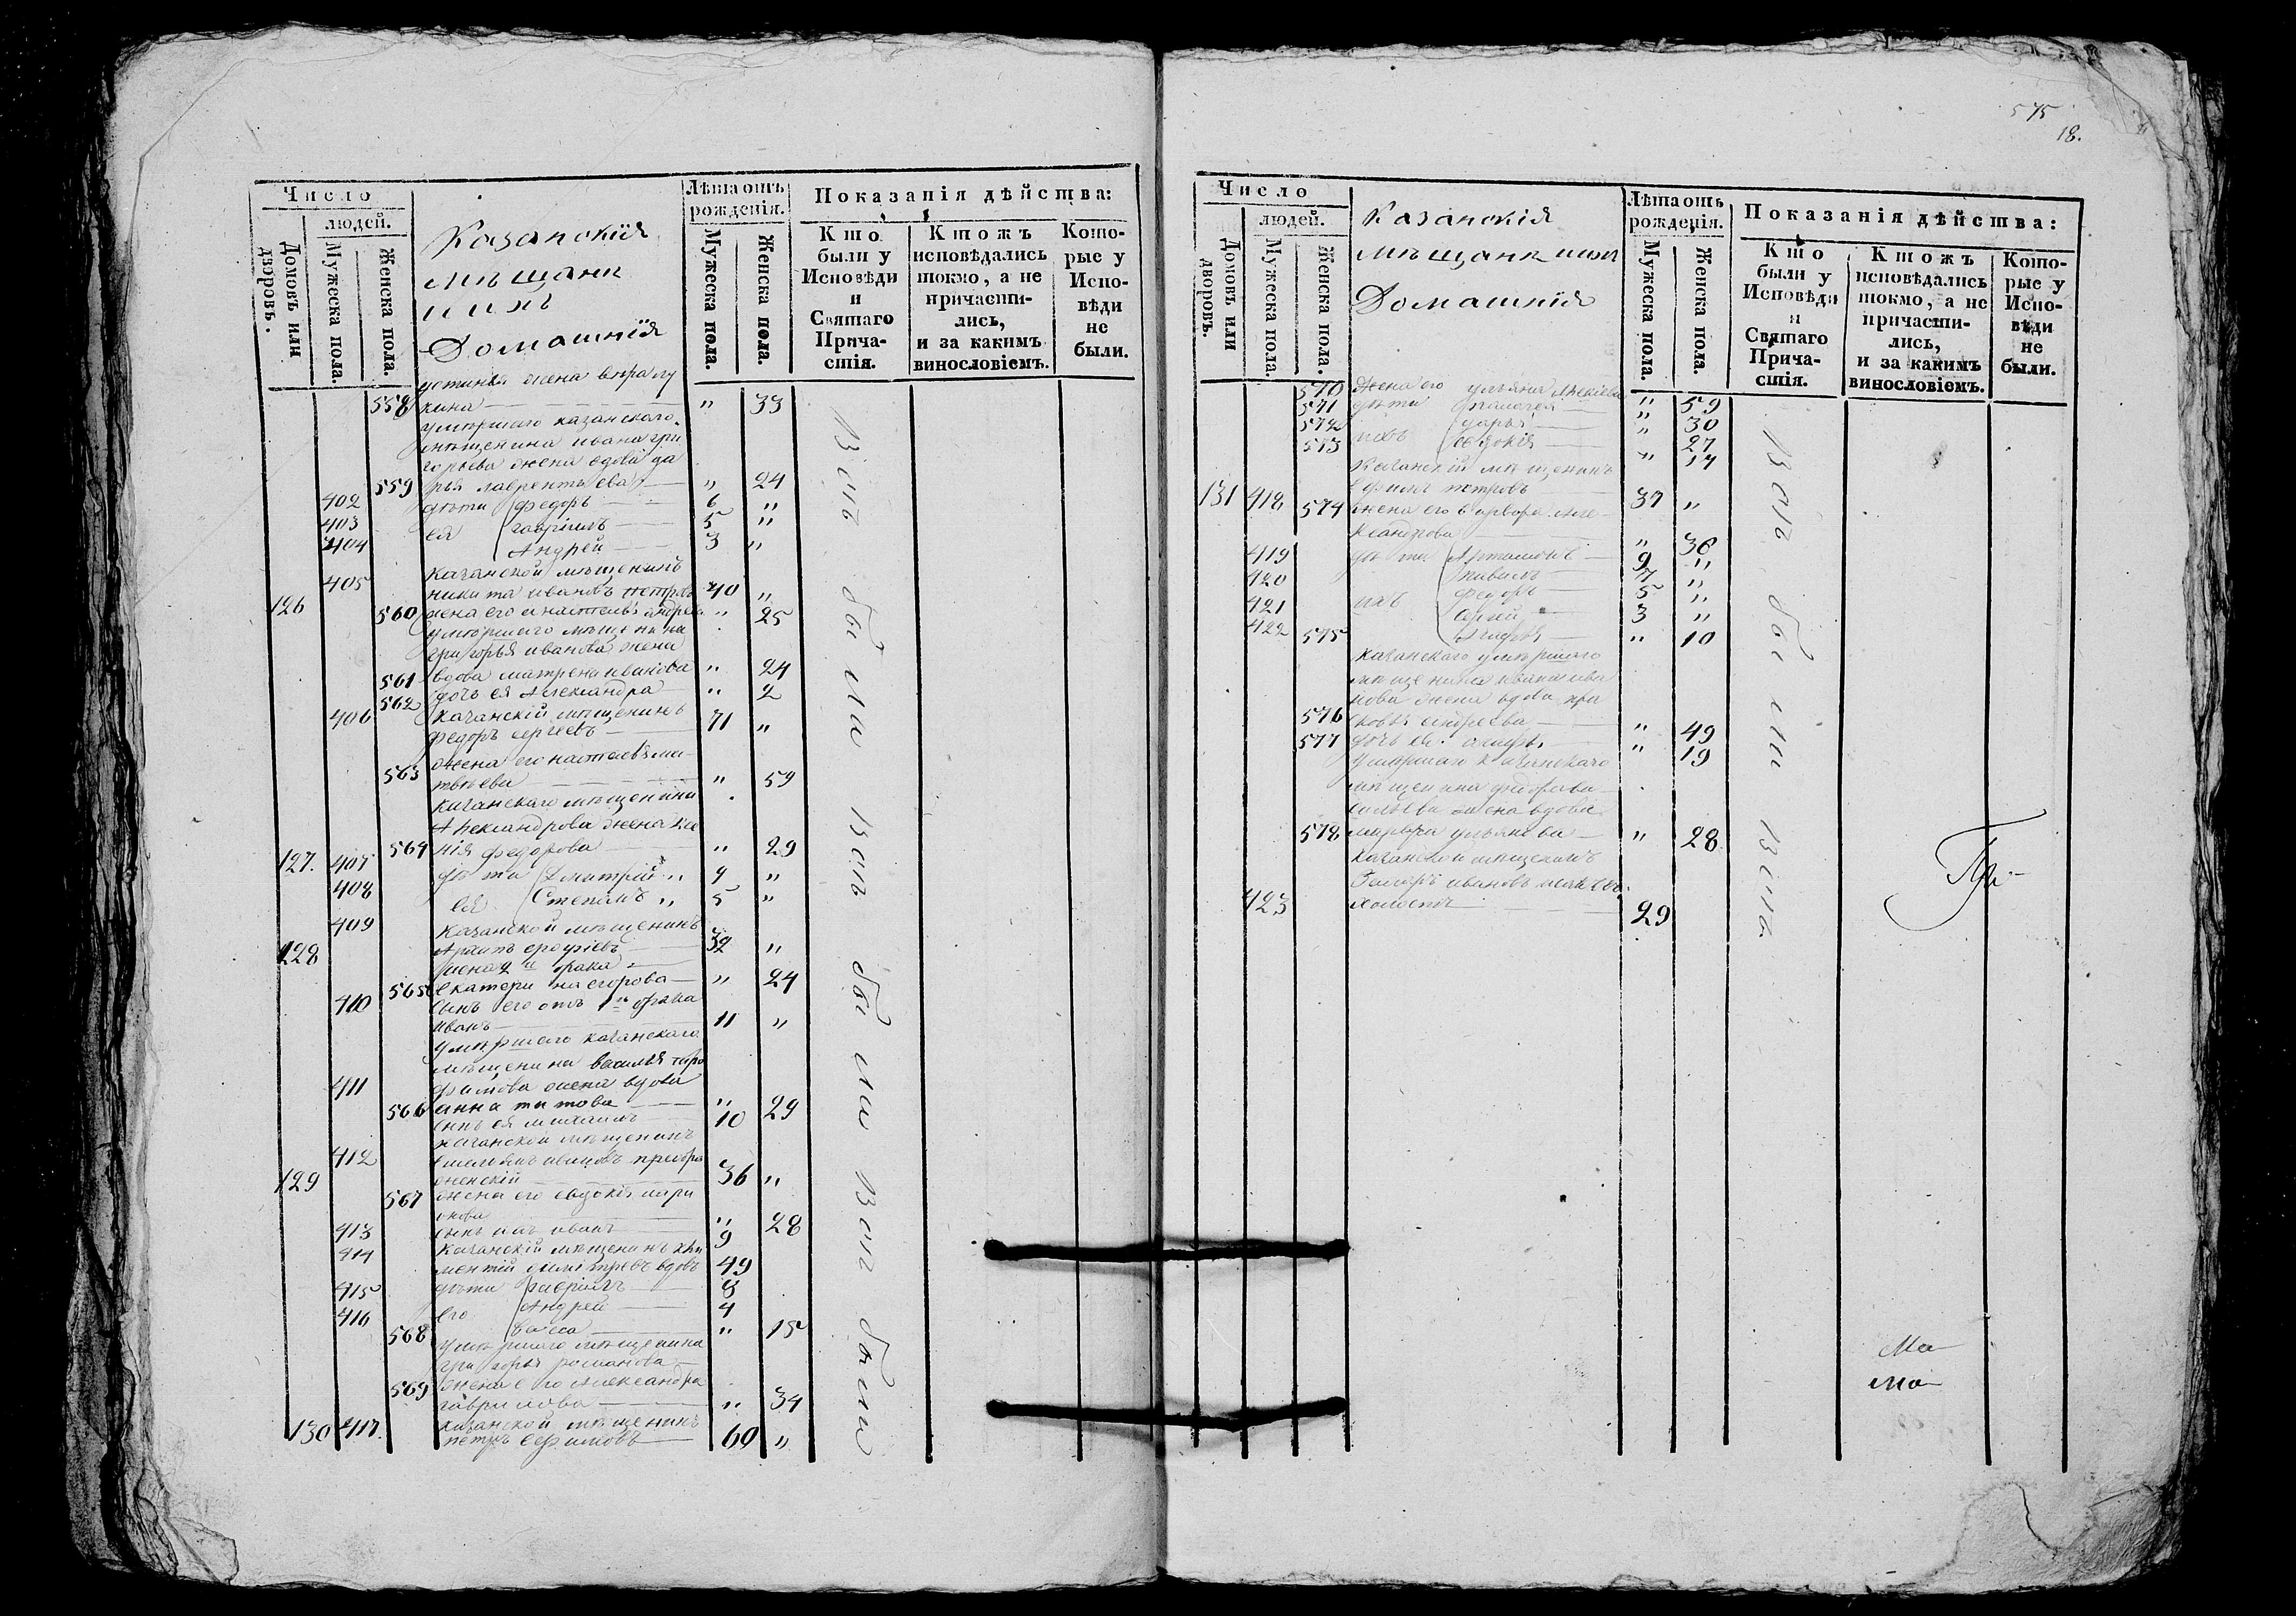 575
18.
Число
людей.
Домовъ или дворовъ.
Мужеска пола.
Женска пола.
Казанскія
мѣщани
нинъ
Домашнія
Лѣта отъ рожденія.
Мужеска пола.
Женска пола.
Показанія дѣйства:
Кто были у Исповѣди и Святаго Прича-стія.
Ктожъ исповѣдались токмо, а не причасти-лись, и за какимъ винословіемъ.
Кото-рые у Испо-вѣди не были.
устинья жена
558 кина " 33
умершаго казанскаго
мѣщенина ивана гри
горьева жена вдова да
559 рья лаврентьева " 24
402 дѣти федоръ 6 "
403 ея гаврiилъ 5 "
404 Андрей 3 "
казанской мѣщенинъ
405 никита ивановъ петровъ 40 "
126 560 жена его анастасья андрева " 25
умершаго мѣщенина
григорья иванова жена
561 вдова матрена иванова " 24
562 дочь ея Александра " 2
406 казанскій мѣщенинъ
федоръ сергеевъ 71 "
жена его настасья ма
563 твѣева " 59
казанскаго мѣщенина
Александрова жена
564 нія федорова " 29
127. 407 дѣти Дмитрій " 9 "
408 ея Степанъ " 5 "
409 казанской мѣщенинъ
128 Архипъ ерофіевъ 32 "
жена 2 брака
565 екатерина егорова " 24
410 сынъ его отъ 1 брака
иванъ 11 "
умершаго казанскаго
мѣщенина василья тро
411 фимова жена вдова
566 анна титова " 29
сынъ ея михаилъ 10
казанской мѣщенинъ
412 емельянъ ивановъ преобра
129 женскій 36 "
567 жена его евдокія лари
онова " 28
413 сынъ ихъ иванъ 9
414 казанскій мѣщенинъ кли
ментій димітревъ вдовъ 49
415 дѣти гаврiилъ 8
416 его Андрей 4
568 васса " 15
умершаго мѣщенина
григорья романова
569 жена его Александра
гаврилова " 34
130 417. казанской мѣщенинъ
петръ ефимовъ 60 "
Вси были Вси были Вси были
Число
людей.
Домовъ или дворовъ.
Мужеска пола.
Женска пола.
Казанскія
мѣщани
Домашнія
Лѣта отъ рожденія.
Мужеска пола.
Женска пола.
Показанія дѣйства:
Кто были у Исповѣди и Святаго Прича-стія.
Ктожъ исповѣдались токмо, а не причасти-лись, и за какимъ винословіемъ.
Кото-рые у Испо-вѣди не были.
570 жена его ульяна " 59
571 дѣти " 30
572 дарья " 27
573 ихъ евдокія " 17
казанскій мѣщенинъ
131 418 ефимъ петровъ 37 "
574 жена его варвара Але
ксандрова " 36
419 дѣти Артамонъ 9 "
420 павелъ 7 "
421 ихъ федоръ 5 "
422 3 "
575 " 10
казанскаго умершаго
мѣщенина ивана ива
нова жена вдова пра
576 сковья андреева " 49
577 дочь ея " 19
умершаго казанскаго
мѣщенина федора ва
сильева жена вдова
578 марфа ульянова " 28
казанской мѣщенинъ
ивановъ
423 холостъ 29
Вси были Вси
При-
Ма
ма